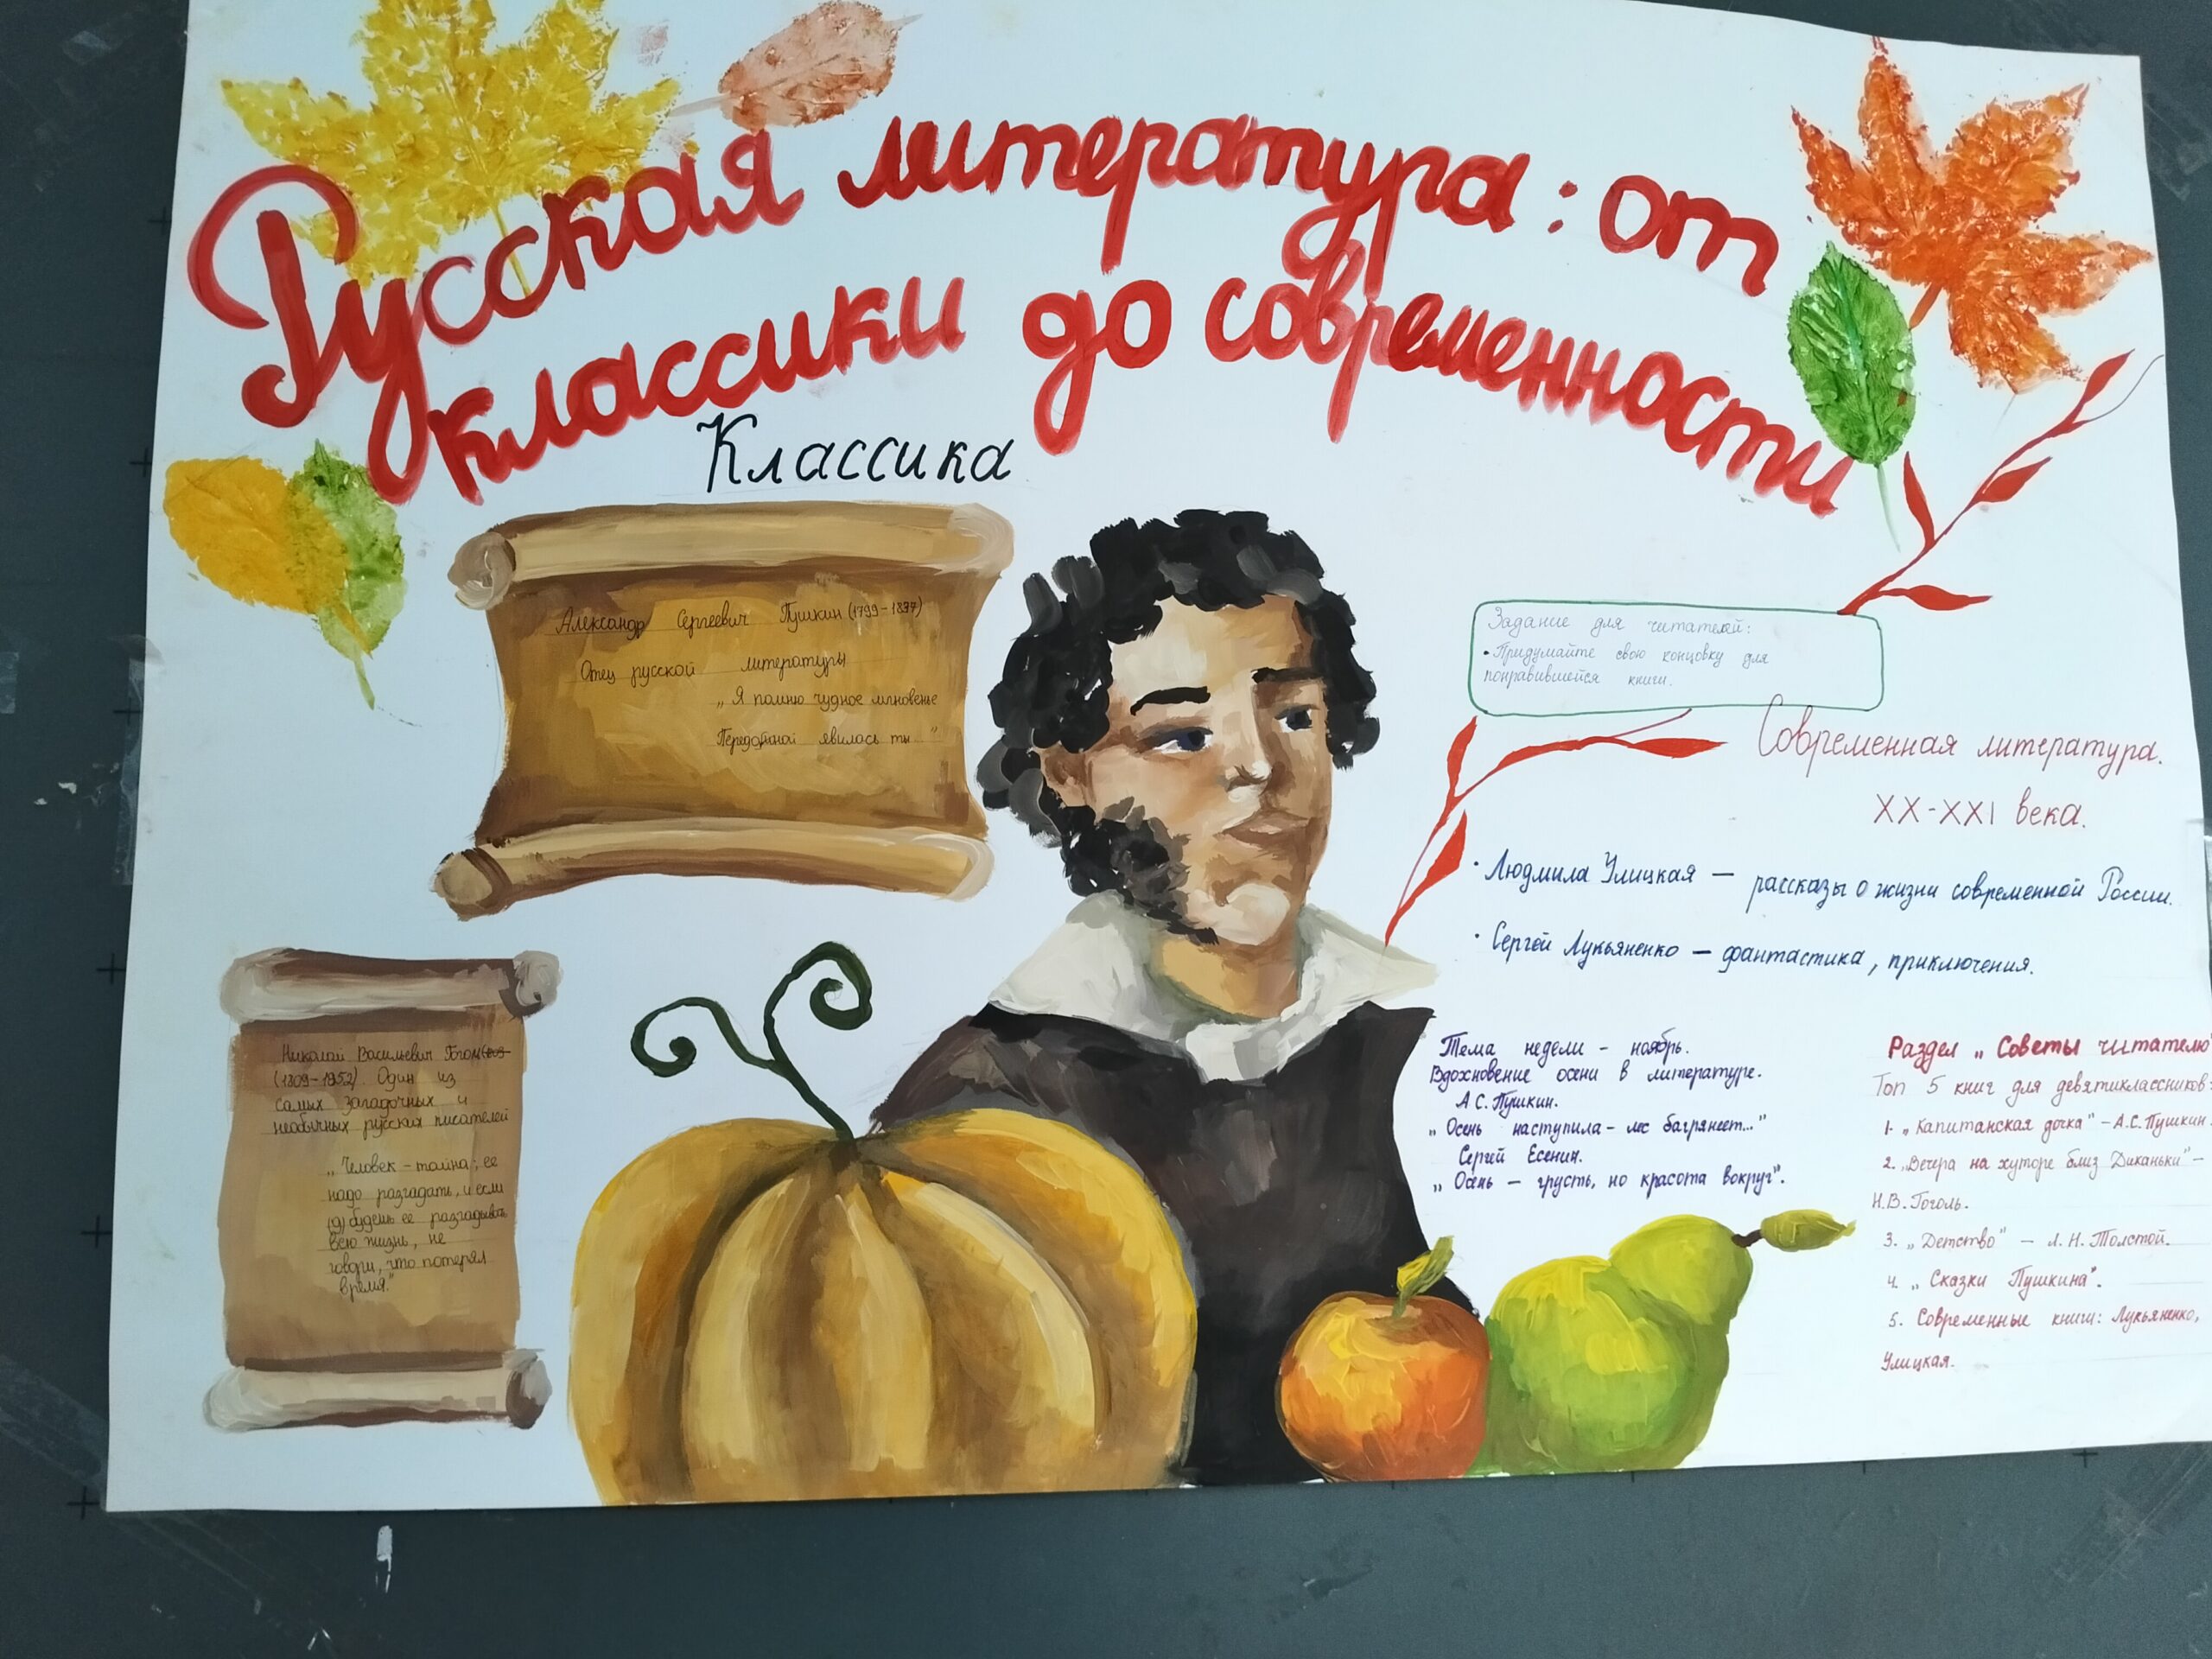 Русская литература: от
классики до современности
Классика
Александр Сергеевич Пушкин (1799-1837)
Отец русской литературы
„Я помню чудное мгновенье
Передомной явилась ты..."
Николай Васильевич Гоголь
(1809-1852). Один из
самых загадочных и
необычных русских писателей
„Человек - тайна; ее
надо разгадать, и если
будешь ее разгадывать
всю жизнь, не
говори, что потерял
время."
Задание для читателей:
• Придумайте свою концовку для
понравившейся книги.
Современная литература.
XX-XXI века.
• Людмила Улицкая — рассказы о жизни современной России.
• Сергей Лукьяненко — фантастика, приключения.
Тема недели - ноябрь.
Вдохновение осени в литературе.
А С. Пушкин.
„Осень наступила - лес багрянеет..."
Сергей Есенин.
„Осень — грусть, но красота вокруг".
Раздел „Советы читателю
Топ 5 книг для девятиклассников:
1. „Капитанская дочка" - А.С. Пушкин.
2. „Вечера на хуторе близ Диканьки" -
Н.В. Гоголь.
3. „Детство" - Л.Н. Толстой.
4. „Сказки Пушкина".
5. Современные книги: Лукьяненко,
Улицкая.